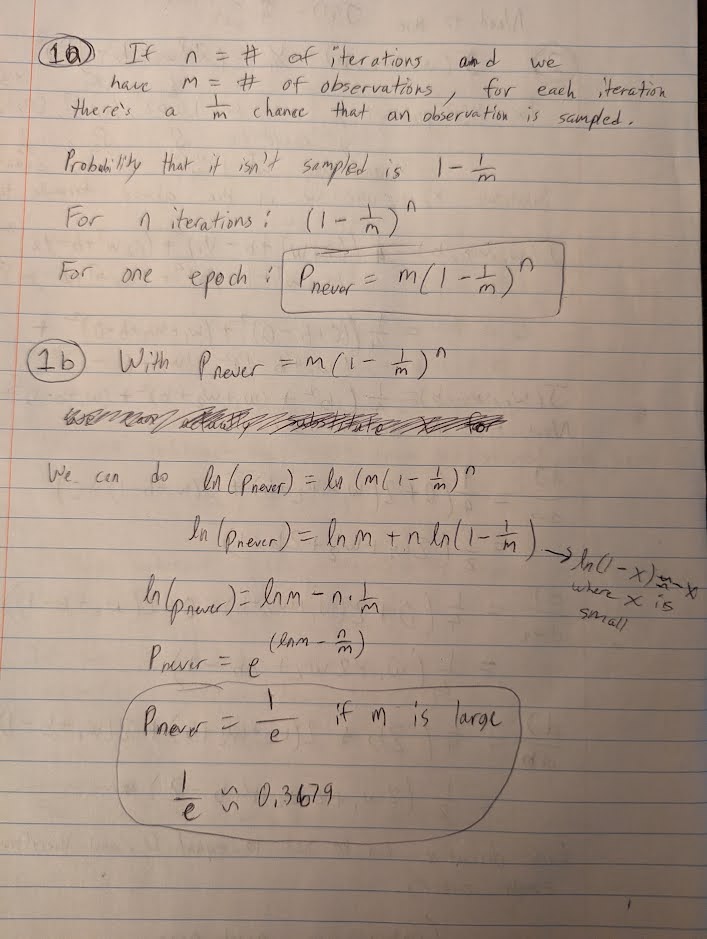 1a If n = # of iterations and we
have m = # of observations, for each iteration
there's a 1/m chance that an observation is sampled.
Probability that it isn't sampled is 1 - 1/m
For n iterations: (1 - 1/m)^n
For one epoch: P_never = m(1 - 1/m)^n
1b With P_never = m(1 - 1/m)^n
We can do ln(P_never) = ln(m(1 - 1/m)^n
ln(P_never) = ln m + n ln(1 - 1/m) → ln(1 - x) ≈ -x
where x is
small
ln(P_never) = ln m - n · 1/m
P_never = e^(ln m - n/m)
P_never = 1/e if m is large
1/e ≈ 0.3679